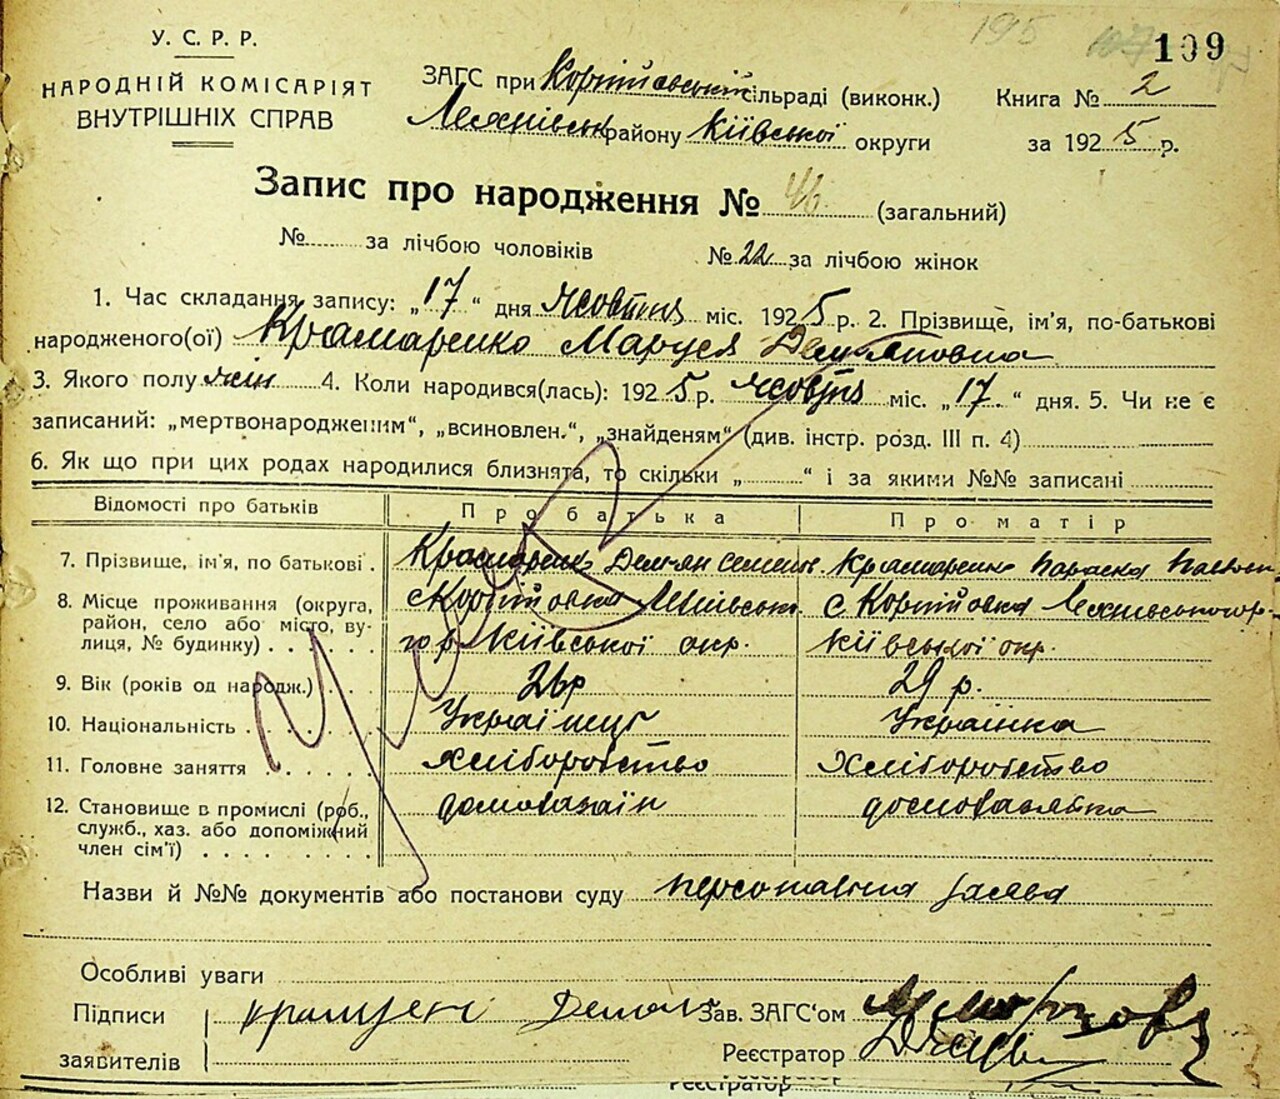 195
109
У. С. Р. Р.
НАРОДНІЙ КОМІСАРІЯТ
ВНУТРІШНІХ СПРАВ
ЗАГС при Корнійовській сільраді (виконк.)
району Київської округи
Книга № 2
за 1925 р.
Запис про народження № 46 (загальний)
№ за лічбою чоловіків № 22 за лічбою жінок
1. Час складання запису: „17“ дня жовтня міс. 1925 р. 2. Прізвище, ім'я, по-батькові
народженого(ої) Крамаренко Маруся Демьяновна
3. Якого полу жін 4. Коли народився(лась): 1925 р. жовтня міс. „17.“ дня. 5. Чи не є
записаний: „мертвонародженим“, „всиновлен.“, „знайденям“ (див. інстр. розд. III п. 4)
6. Як що при цих родах народилися близнята, то скільки „ “ і за якими №№ записані
Відомості про батьків Про батька Про матір
7. Прізвище, ім'я, по батькові. Крамаренко Демьян Семен. Крамаренко Параска
8. Місце проживання (округа, район, село або місто, вулиця, № будинку) с Корнійовка
го р Київської окр. с Корнійовка Київської окр.
9. Вік (років од народж.) 26р 29 р.
10. Національність Українець Українка
11. Головне заняття хліборобство Хліборобство
12. Становище в промислі (роб., служб., хаз. або допоміжний член сім'ї) домохазаїн домохазяйка
Назви й №№ документів або постанови суду персональна заява
Особливі уваги
Підписи заявителів
Зав. ЗАГС'ом
Реєстратор
Реєстратор